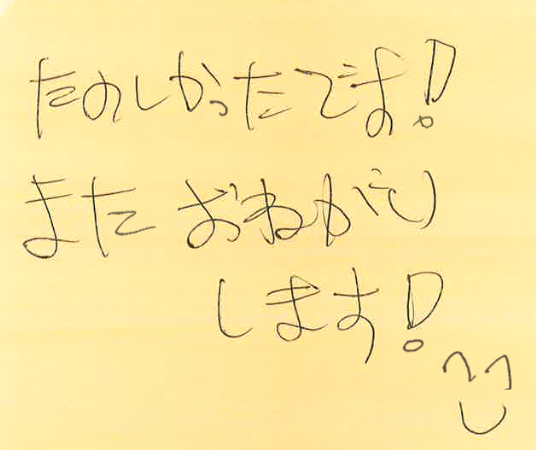 たのしかったです!
また おねがい
します!